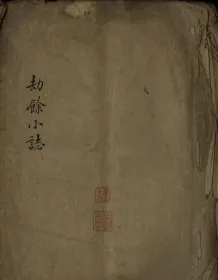 劫餘小誌